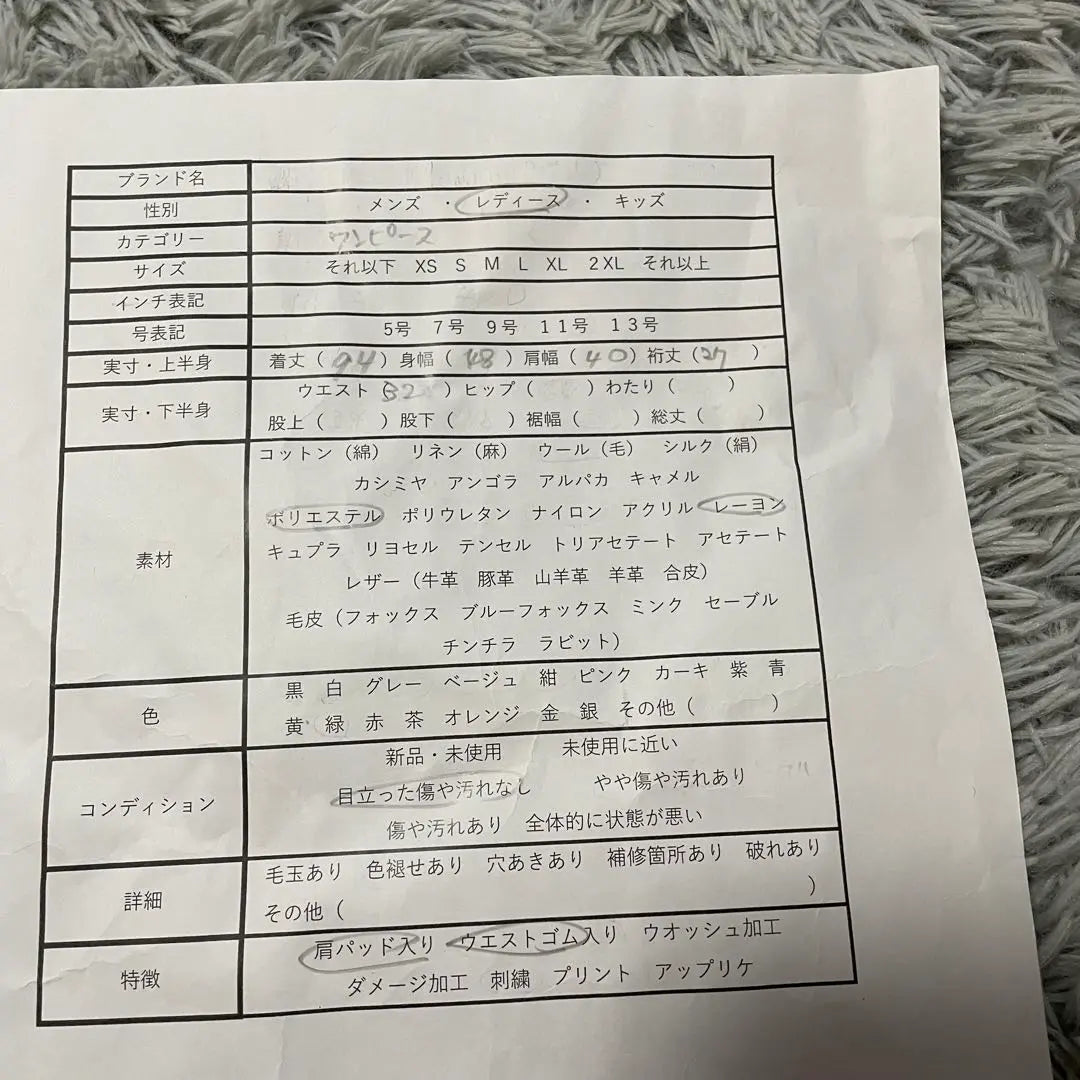 ブランド名
性別 メンズ ・ レディース ・ キッズ
カテゴリー ワンピース
サイズ それ以下 XS S M L XL 2XL それ以上
インチ表記
号表記 5号 7号 9号 11号 13号
実寸・上半身 着丈（94）身幅（48）肩幅（40）裄丈（27）
実寸・下半身 ウエスト（32）ヒップ（ ）わたり（ ）
股上（ ）股下（ ）裾幅（ ）総丈（ ）
素材 コットン（綿） リネン（麻） ウール（毛） シルク（絹）
カシミヤ アンゴラ アルパカ キャメル
ポリエステル ポリウレタン ナイロン アクリル レーヨン
キュプラ リヨセル テンセル トリアセテート アセテート
レザー（牛革 豚革 山羊革 羊革 合皮）
毛皮（フォックス ブルーフォックス ミンク セーブル
チンチラ ラビット）
色 黒 白 グレー ベージュ 紺 ピンク カーキ 紫 青
黄 緑 赤 茶 オレンジ 金 銀 その他（ ）
コンディション 新品・未使用 未使用に近い
目立った傷や汚れなし やや傷や汚れあり
傷や汚れあり 全体的に状態が悪い
詳細 毛玉あり 色褪せあり 穴あきあり 補修箇所あり 破れあり
その他（ ）
特徴 肩パッド入り ウエストゴム入り ウオッシュ加工
ダメージ加工 刺繍 プリント アップリケ